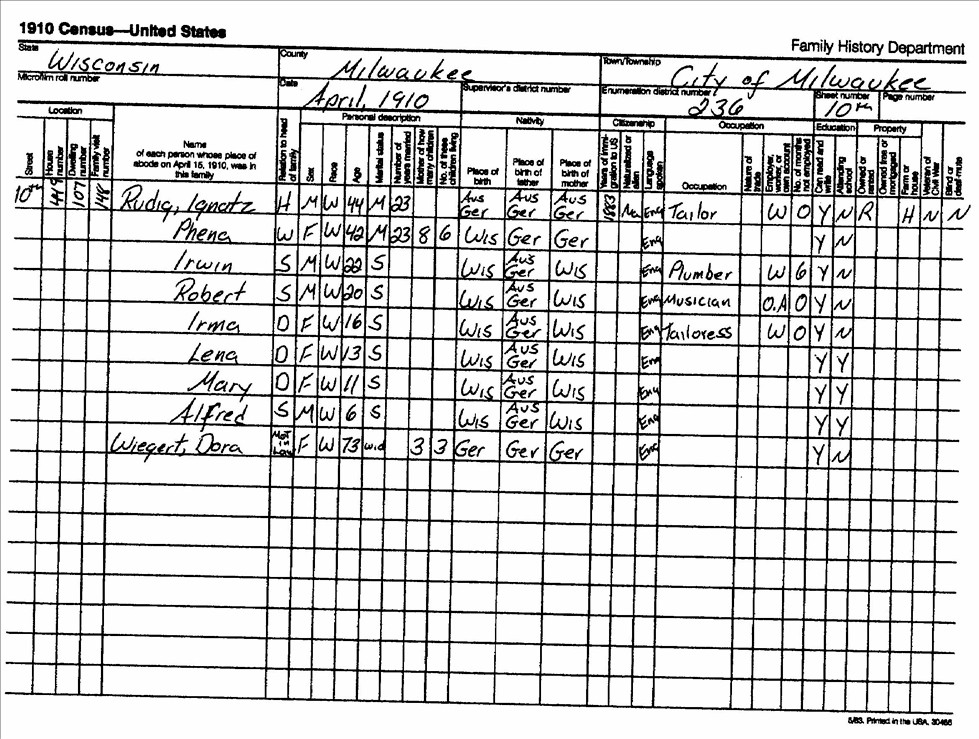 1910 Census—United States
Family History Department
State Wisconsin County Milwaukee Town/Township City of Milwaukee
Microfilm roll number Date April, 1910 Supervisor's district number Enumeration district number 236 Sheet number 10th Page number
Location Personal description Nativity Citizenship Occupation Education Property
Street House number Dwelling number Family visit number Name of each person whose place of abode on April 15, 1910, was in this family Relation to head of family Sex Race Age Marital status Number of years married Mother of how many children No. of these children living Place of birth Place of birth of father Place of birth of mother Years of immigration to US Naturalized or alien Language spoken Occupation Nature of trade Employer, worker, or own account No. of months not employed Can read and write Attending school Owned or rented Owned free or mortgaged Farm or house Veteran of Civil War Blind or deaf-mute
10th 449 107 148 Rudig, Ignatz H M W 44 M 23 Aus Ger Aus Ger Aus Ger 1883 Na Eng Tailor W O Y N R H N N
Phena W F W 42 M 23 8 6 Wis Ger Ger Eng Y N
Irwin S M W 22 S Wis Aus Ger Wis Eng Plumber W 6 Y N
Robert S M W 20 S Wis Aus Ger Wis Eng Musician O.A O Y N
Irma D F W 16 S Wis Aus Ger Wis Eng Tailoress W O Y N
Lena D F W 13 S Wis Aus Ger Wis Eng Y Y
Mary D F W 11 S Wis Aus Ger Wis Eng Y Y
Alfred S M W 6 S Wis Aus Ger Wis Eng Y Y
Wiegert, Dora Mot-in-Law F W 73 wid 3 3 Ger Ger Ger Eng Y N
5/83. Printed in the USA. 30466